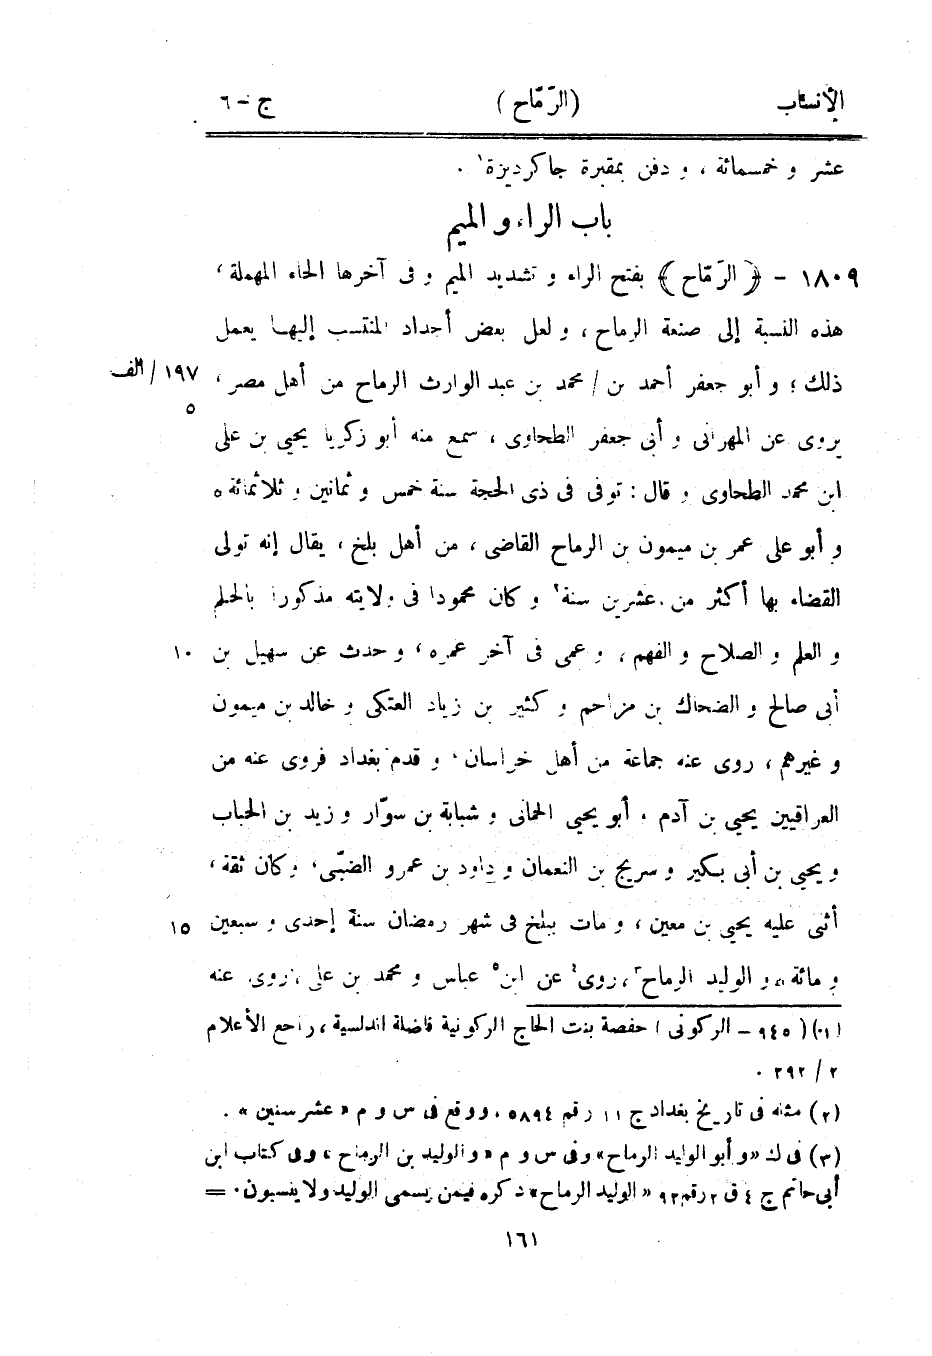 الأنساب (الرّمّاح) ج - ٦
عشر و خمسمائة ، و دفن بمقبرة جاكرديزة١ .
باب الراء و الميم
١٨٠٩ - ﴿ الرّمّاح ﴾ بفتح الراء و تشديد الميم و فى آخرها الحاء المهملة ،
هذه النسبة إلى صنعة الرماح ، و لعل بعض أجداد المنتسب إليها يعمل
ذلك ؛ و أبو جعفر أحمد بن / محمد بن عبد الوارث الرماح من أهل مصر ، ١٩٧ / الف
٥
يروى عن المهرانى و أبى جعفر الطحاوى ، سمع منه أبو زكريا يحيى بن على
ابن محمد الطحاوى و قال : توفى فى ذى الحجة سنة خمس و ثمانين و ثلاثمائة ه
و أبو على عمر بن ميمون بن الرماح القاضى ، من أهل بلخ ، يقال إنه تولى
القضاء بها أكثر من عشرين سنة٢ و كان محمودا فى ولايته مذكورا بالحلم
و العلم و الصلاح و الفهم ، و عمى فى آخر عمره ، و حدث عن سهيل بن ١٠
أبى صالح و الضحاك بن مزاحم و كثير بن زياد العتكى و خالد بن ميمون
و غيرهم ، روى عنه جماعة من أهل خراسان ، و قدم بغداد فروى عنه من
العراقيين يحيى بن آدم و أبو يحيى الحمانى و شبابة بن سوّار و زيد بن الحباب
و يحيى بن أبى بكير و سريج بن النعمان و داود بن عمرو الضبّى ، و كان ثقة ،
أثنى عليه يحيى بن معين ، و مات ببلخ فى شهر رمضان سنة إحدى و سبعين ١٥
و مائة ، و الوليد الرماح٣ ، روى٤ عن ابن٥ عباس و محمد بن على ، روى عنه
(١) (٩٤٥ - الركونى) حفصة بنت الحاج الركونية فاضلة اندلسية ، راجع الأعلام
٢ / ٢٩٢ .
(٢) مثله فى تاريخ بغداد ج ١١ رقم ٥٨٩٤ ، ووقع فى س و م « عشر سنين » .
(٣) فى ك «و أبو الوليد الرماح» وفى س و م « والوليد بن الرماح » ، وفى كتاب ابن
أبى حاتم ج ٤ ق ٢ رقم ٩٢ « الوليد الرماح» ذكره فيمن يسمى الوليد ولا ينسبون . =
١٦١